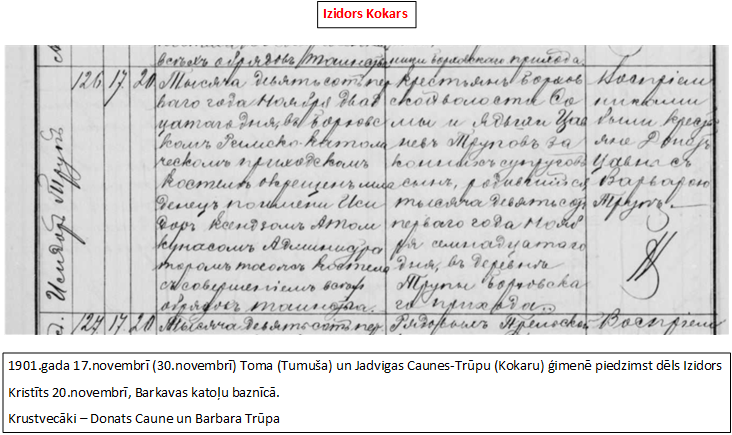 Izidors Kokars
всѣхъ обрядовъ таинства.
ницы Борховскаго прихода.
Исидоръ Трупъ
126 17 20
Тысяча девятьсотъ пер
ваго года Ноября двад
цатаго дня, въ Борховс
комъ Римско-католи
ческомъ приходскомъ
костелѣ окрещенъ мла
денецъ по имени Иси
доръ ксендзомъ
Администра
торомъ тогожъ костела
съ совершеніемъ всѣхъ
обрядовъ таинства.
крестьянъ Борхов
ской волости Ѳо
мы и Ядвиги Цав
невъ Труповъ за
конныхъ супруговъ
сынъ, родившійся
тысяча девятьсотъ
перваго года Нояб
ря семнадцатаго
дня, въ деревнѣ
Трупы Борховска
го прихода.
Воспріем
никами
были кресть
яне Донатъ
Цавна съ
Варварою
Трупъ.
127 17 20
Тысяча девятьсотъ пер
Рядовымъ Прельской
Воспріем
1901.gada 17.novembrī (30.novembrī) Toma (Tumuša) un Jadvigas Caunes-Trūpu (Kokaru) ģimenē piedzimst dēls Izidors
Kristīts 20.novembrī, Barkavas katoļu baznīcā.
Krustvecāki – Donats Caune un Barbara Trūpa